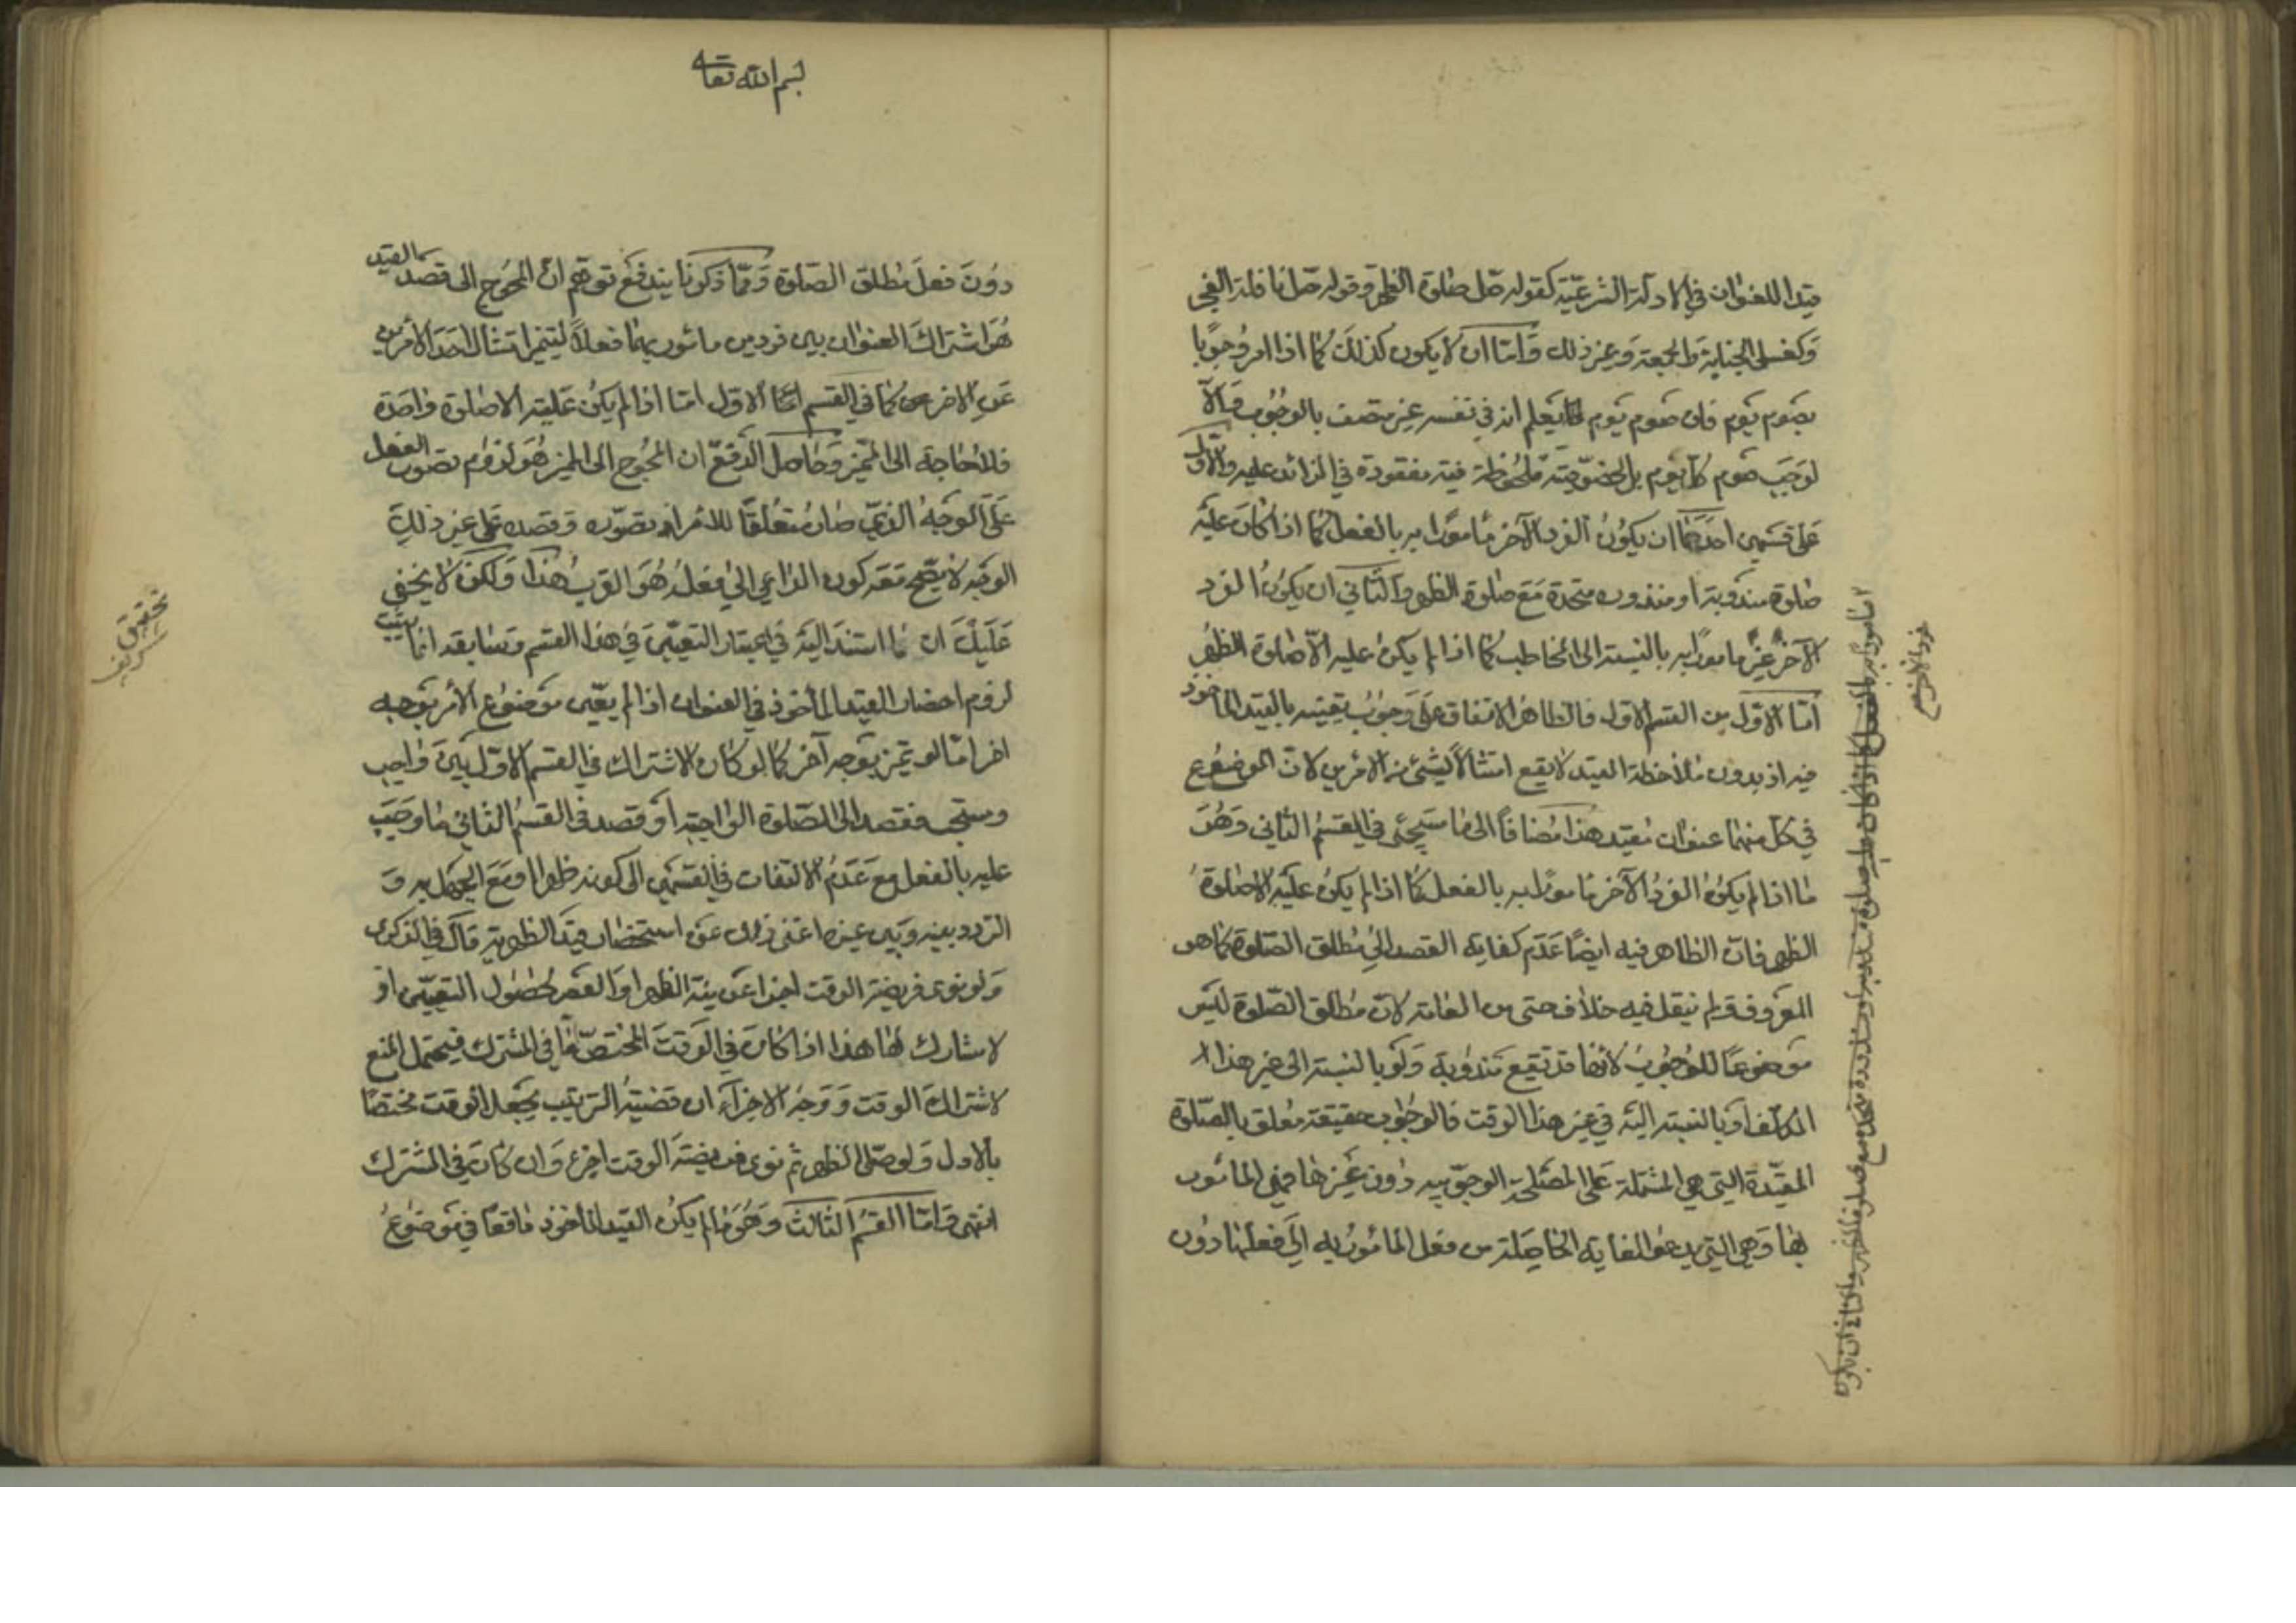 قيدا للعنوان في الادلة الشرعية كقوله صل صلوة الظهر وقوله صل نافلة الفجر
وكغسل الجنابة والجمعة وغير ذلك واما ان لا يكون كذلك كما اذا امر وجوبا
بصوم يوم فان صوم يوم انما يعلم انه في نفسه غير متصف بالوجوب والا
لوجب صوم كل يوم بل لخصوصية ملحوظة فيه مفقودة في الزائد عليه والاول
على قسمين احدهما ان يكون الفرد الآخر مامورا به بالفعل كما اذا كان عليه
صلوة مندوبة او منذورة متحدة مع صلوة الظهر والثاني ان يكون الفرد
الآخر غير مامورا به بالنسبة الى المخاطب كما اذا لم يكن عليه الا صلوة الظهر
اما الاول من القسم الاول فالظاهر الاتفاق على وجوب تعيينه بالقيد الماخوذ
فيه اذ بدون ملاحظة القيد لا يقع امتثالا لشيء من الامرين لان الموضوع
في كل منهما عنوان مقيد هذا مضافا الى ما سيجئ في القسم الثاني وهو
ما اذا لم يكن الفرد الآخر مامورا به بالفعل كما اذا لم يكن عليه الا صلوة
الظهر فان الظاهر فيه ايضا عدم كفاية القصد الى مطلق الصلوة كما هو
المعروف ولم ينقل فيه خلاف حتى من العامة لان مطلق الصلوة ليس
موضوعا للوجوب لانها قد تقع مندوبة ولو بالنسبة الى غير هذا
المكلف او بالنسبة اليه في غير هذا الوقت فالوجوب حقيقة معلق بالصلوة
المقيدة التي هي المشتملة على المصلحة الوجوبية دون غيرها فهي المامور
بها وهي التي يدعو الغاية الحاصلة من فعل المامور به الى فعلها دون
مامورا به بالفعل كما اذا كان عليه صلوة مندوبة او منذورة متحدة مع صلوة الظهر والثاني ان يكون
فرد الآخر
بسم الله تعالى
دون فعل مطلق الصلوة ومما ذكرنا يندفع توهم ان المحوج الى قصد القيد
هو اشتراك العنوان بين فردين مامور بهما فعلا لتميز امتثال احد الامرين
عن الاخر كما في القسم الاول اما اذا لم يكن عليه الا صلوة واحدة
فلا حاجة الى المميز وحاصل الدفع ان المحوج الى المميز هو لزوم تصور الفعل
على الوجه الذي صار متعلقا للامر اذ تصوره وقصده على غير ذلك
الوجه لا يصح معه كون الداعي الى فعله هو القرب هذا ولكن لا يخفى
عليك ان ما استند اليه في اعتبار التعيين في هذا القسم وسابقه انما يثبت
لزوم احضار القيد الماخوذ في العنوان اذا لم يعين موضوع الامر بوجه
اخر اما لو تميز بوجه آخر كما لو كان الاشتراك في القسم الاول بين واجب
ومستحب فقصد الى الصلوة الواجبة او قصد في القسم الثاني ما وجب
عليه بالفعل مع عدم الالتفات في القسمين الى كونه ظهرا او مع الجهل به و
التردد بينه وبين غيره اغنى ذلك عن استحضار قيد الظهرية قال في الذكرى
ولو نوى فريضة الوقت اجزأ عن نية الظهر او العصر لحصول التعيين او
لا مشارك لها هذا اذا كان في الوقت المختص اما في المشترك فيحتمل المنع
لاشتراك الوقت ووجه الاجزاء ان قضية الترتيب يجعل الوقت مختصا
بالاول ولو صلى الظهر ثم نوى فريضة الوقت اجزء وان كان في المشترك
انتهى واما القسم الثالث وهو ما لم يكن القيد الماخوذ واقعا في موضوع
تحقيق شريف